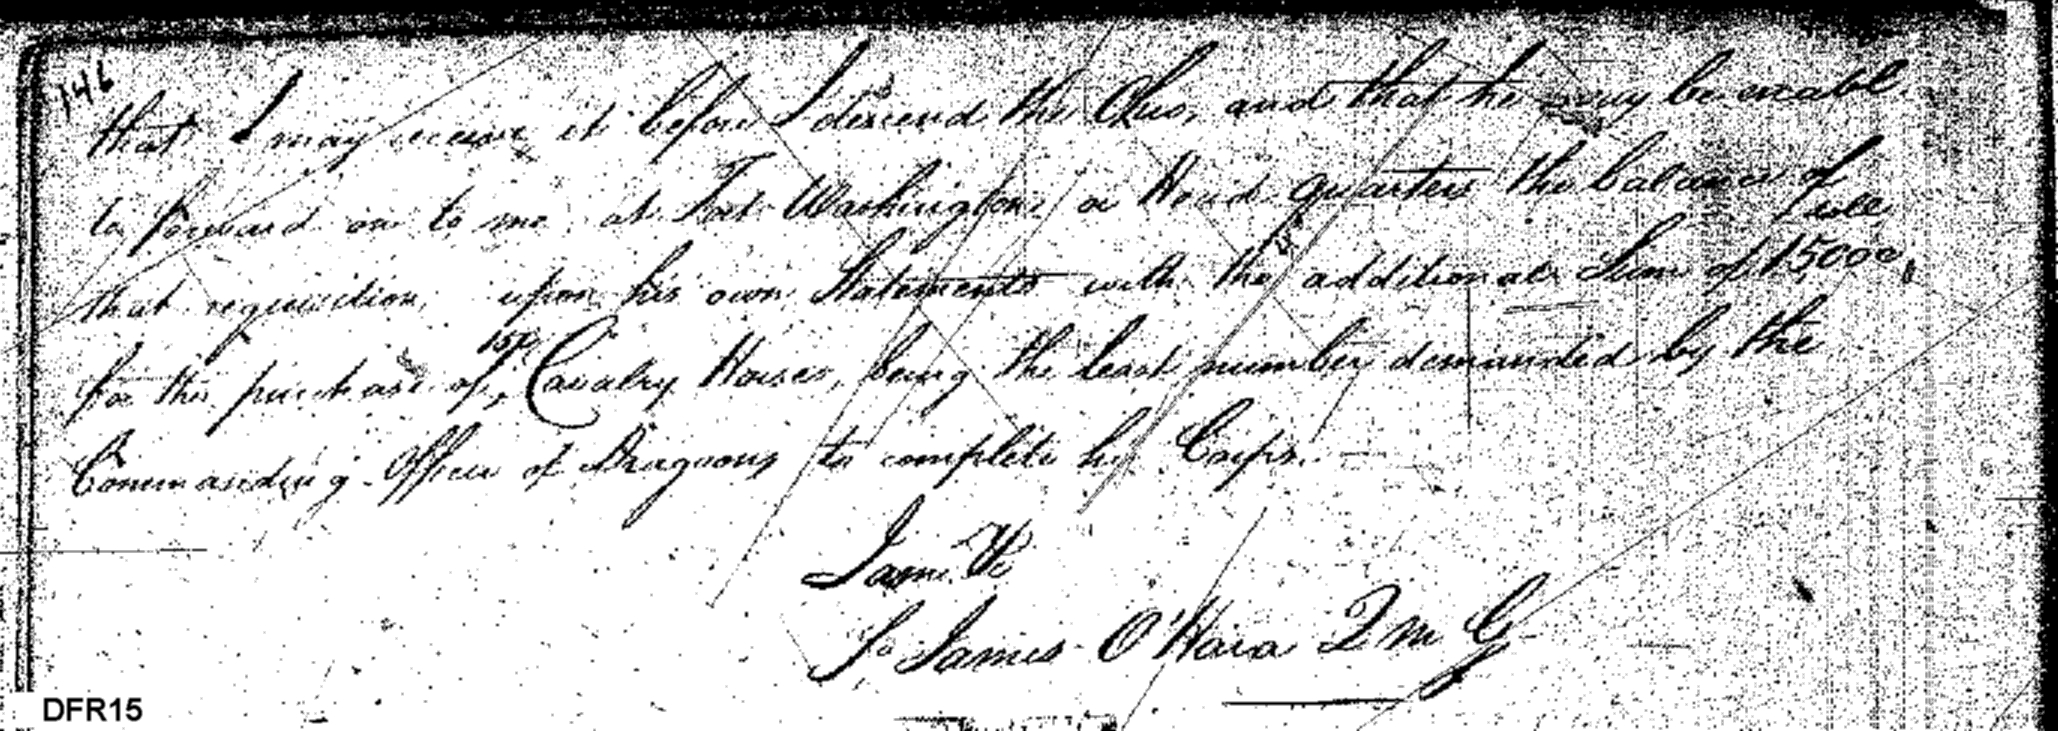 146
that I may receive it before I descend the Ohio, and that he may be enabl
to forward on to me at Fort Washington, or Head quarters the balance of
that requisition, upon his own Statements with the additional Sum of 15000,
for the purchase of 150 Cavalry Horses, being the least number demanded by the
Commanding Officer of Dragoons to complete his Corps.
I am &c
James O'Hara Q M G
DFR15